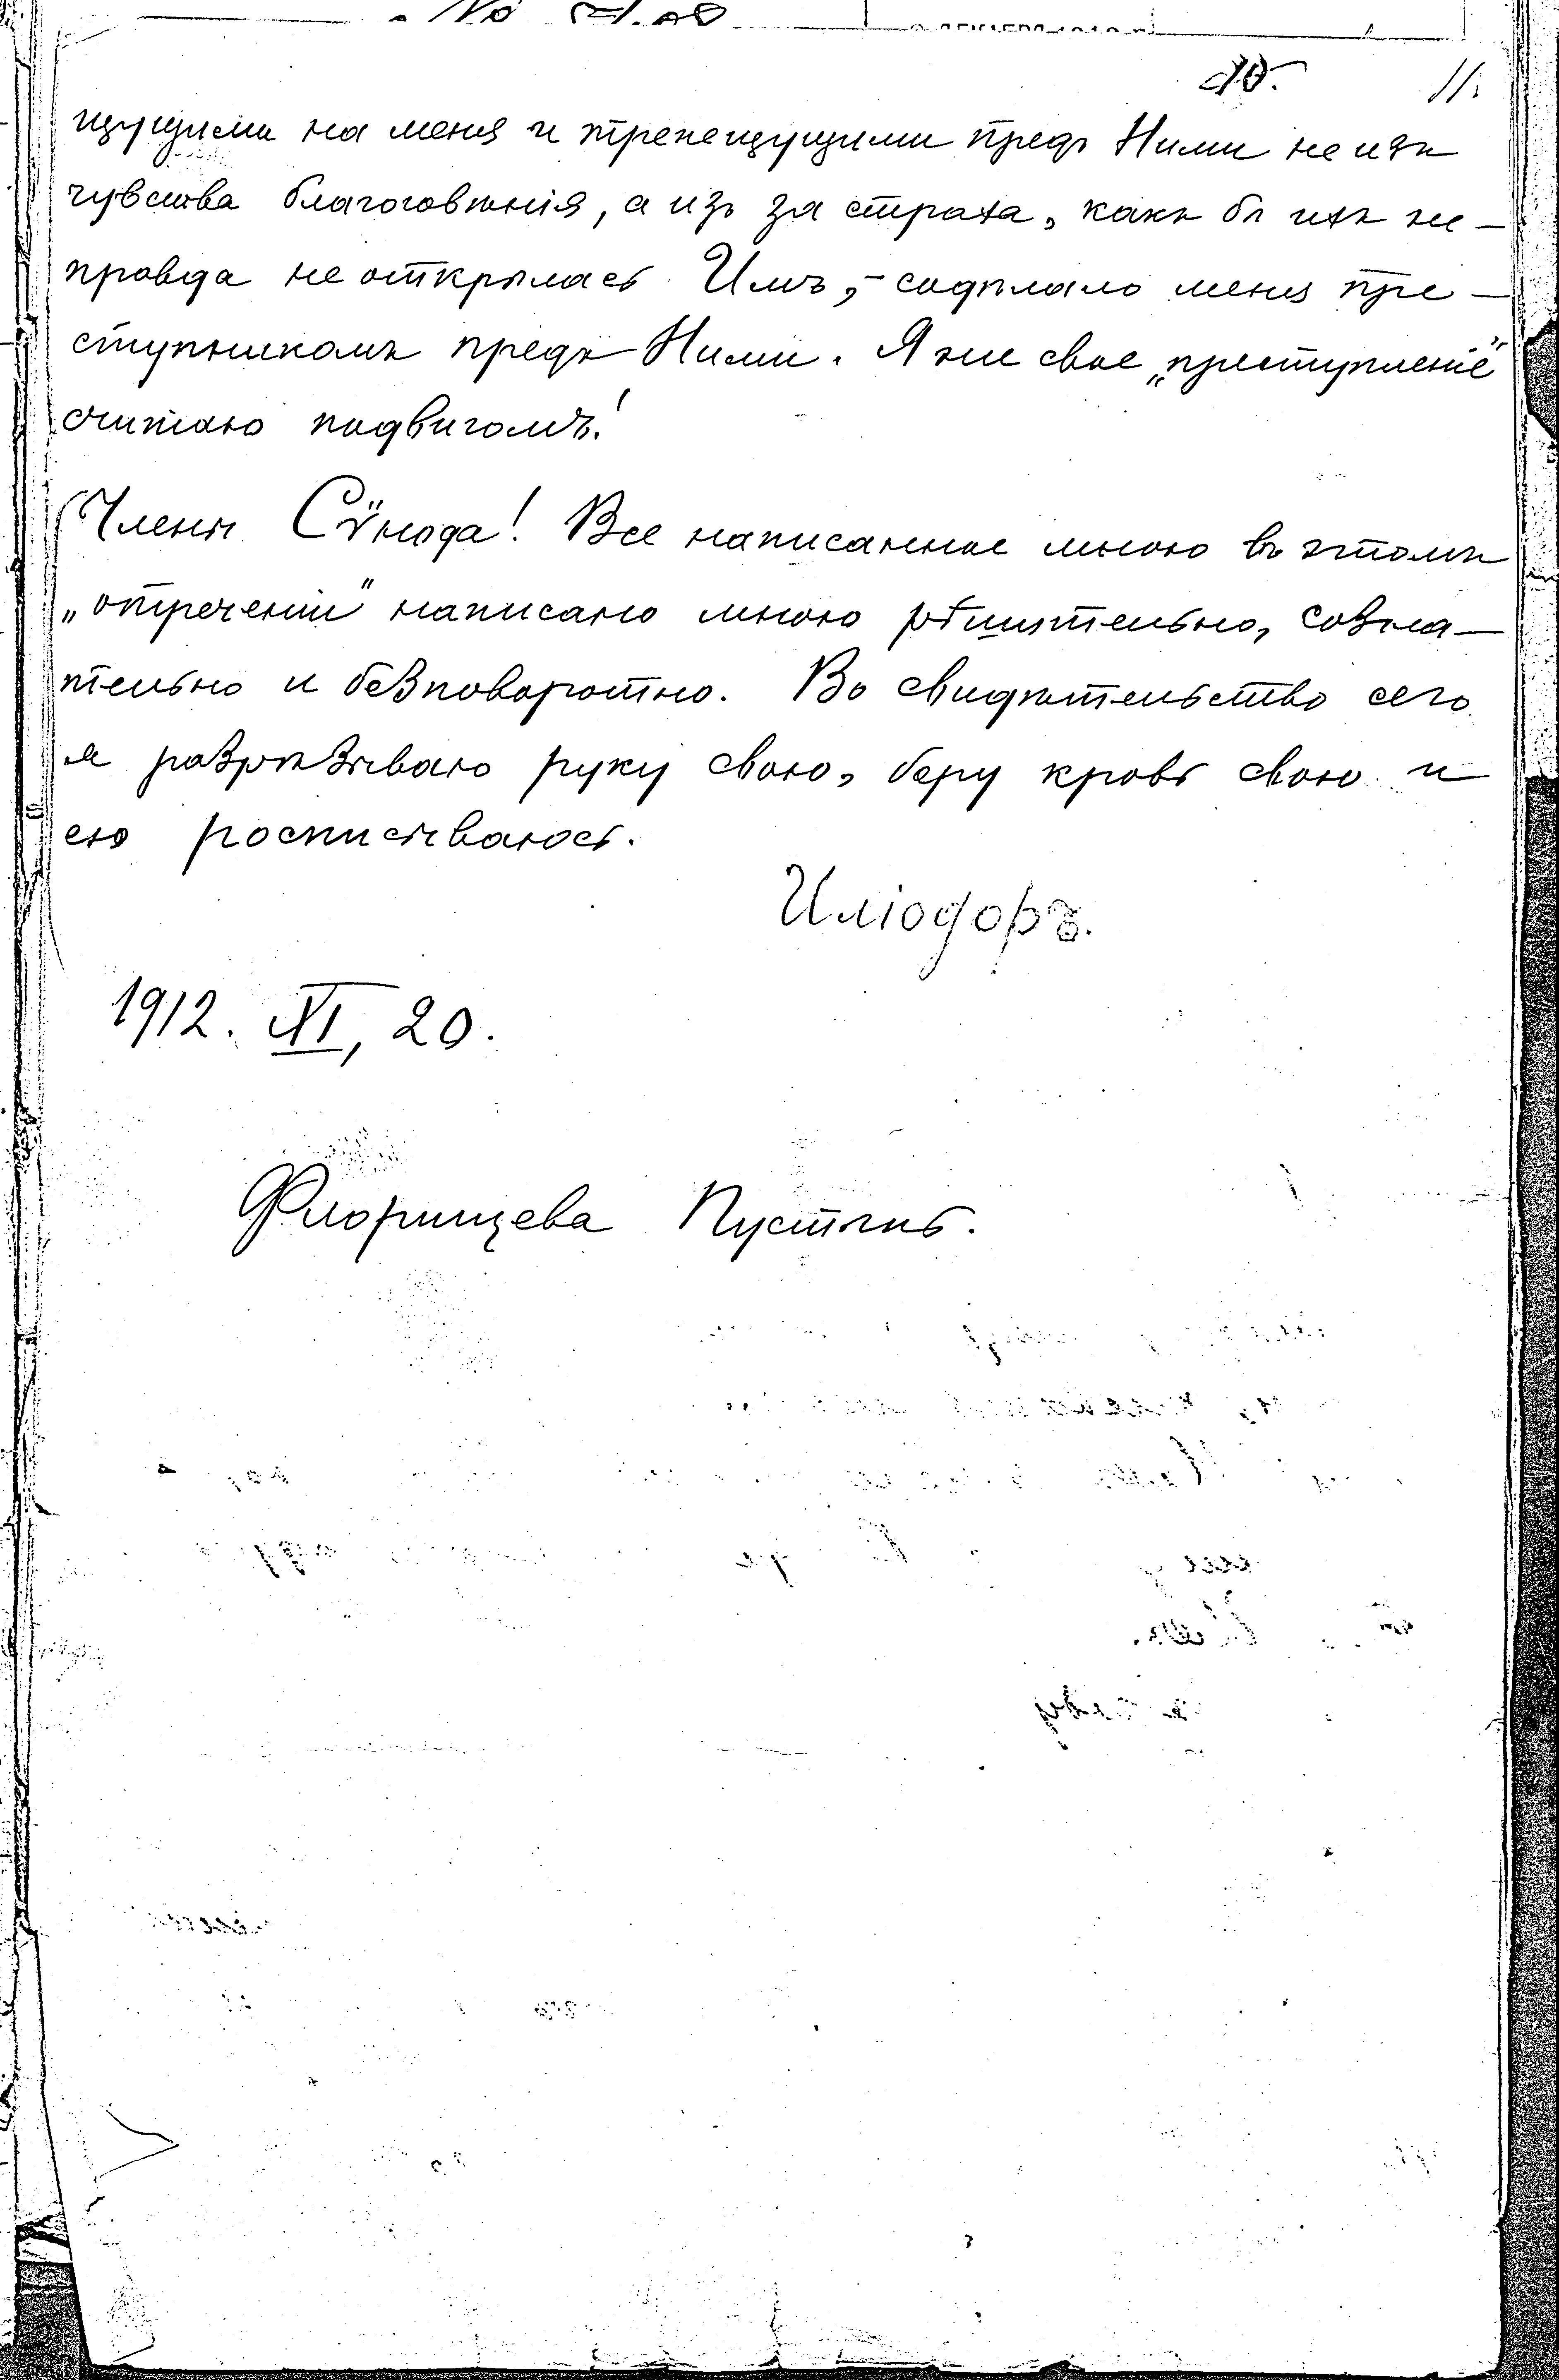 10. 11.
щущими на меня и трепещущими предъ Ними не изъ
чувства благоговѣнія, а изъ за страха, какъ бъ ихъ не-
правда не открылась Имъ, - содѣлало меня пре-
ступникомъ предъ Ними. Я же свое „преступленіе"
считаю подвигомъ!
Члены Сѵнода! Все написанное мною въ этомъ
„отреченіи" написано мною рѣшительно, созна-
тельно и безповоротно. Во свидѣтельство сего
я разрѣзываю руку свою, беру кровь свою и
ею росписываюсь.
Иліодоръ.
1912. XI, 20.
Флорищева Пустынь.